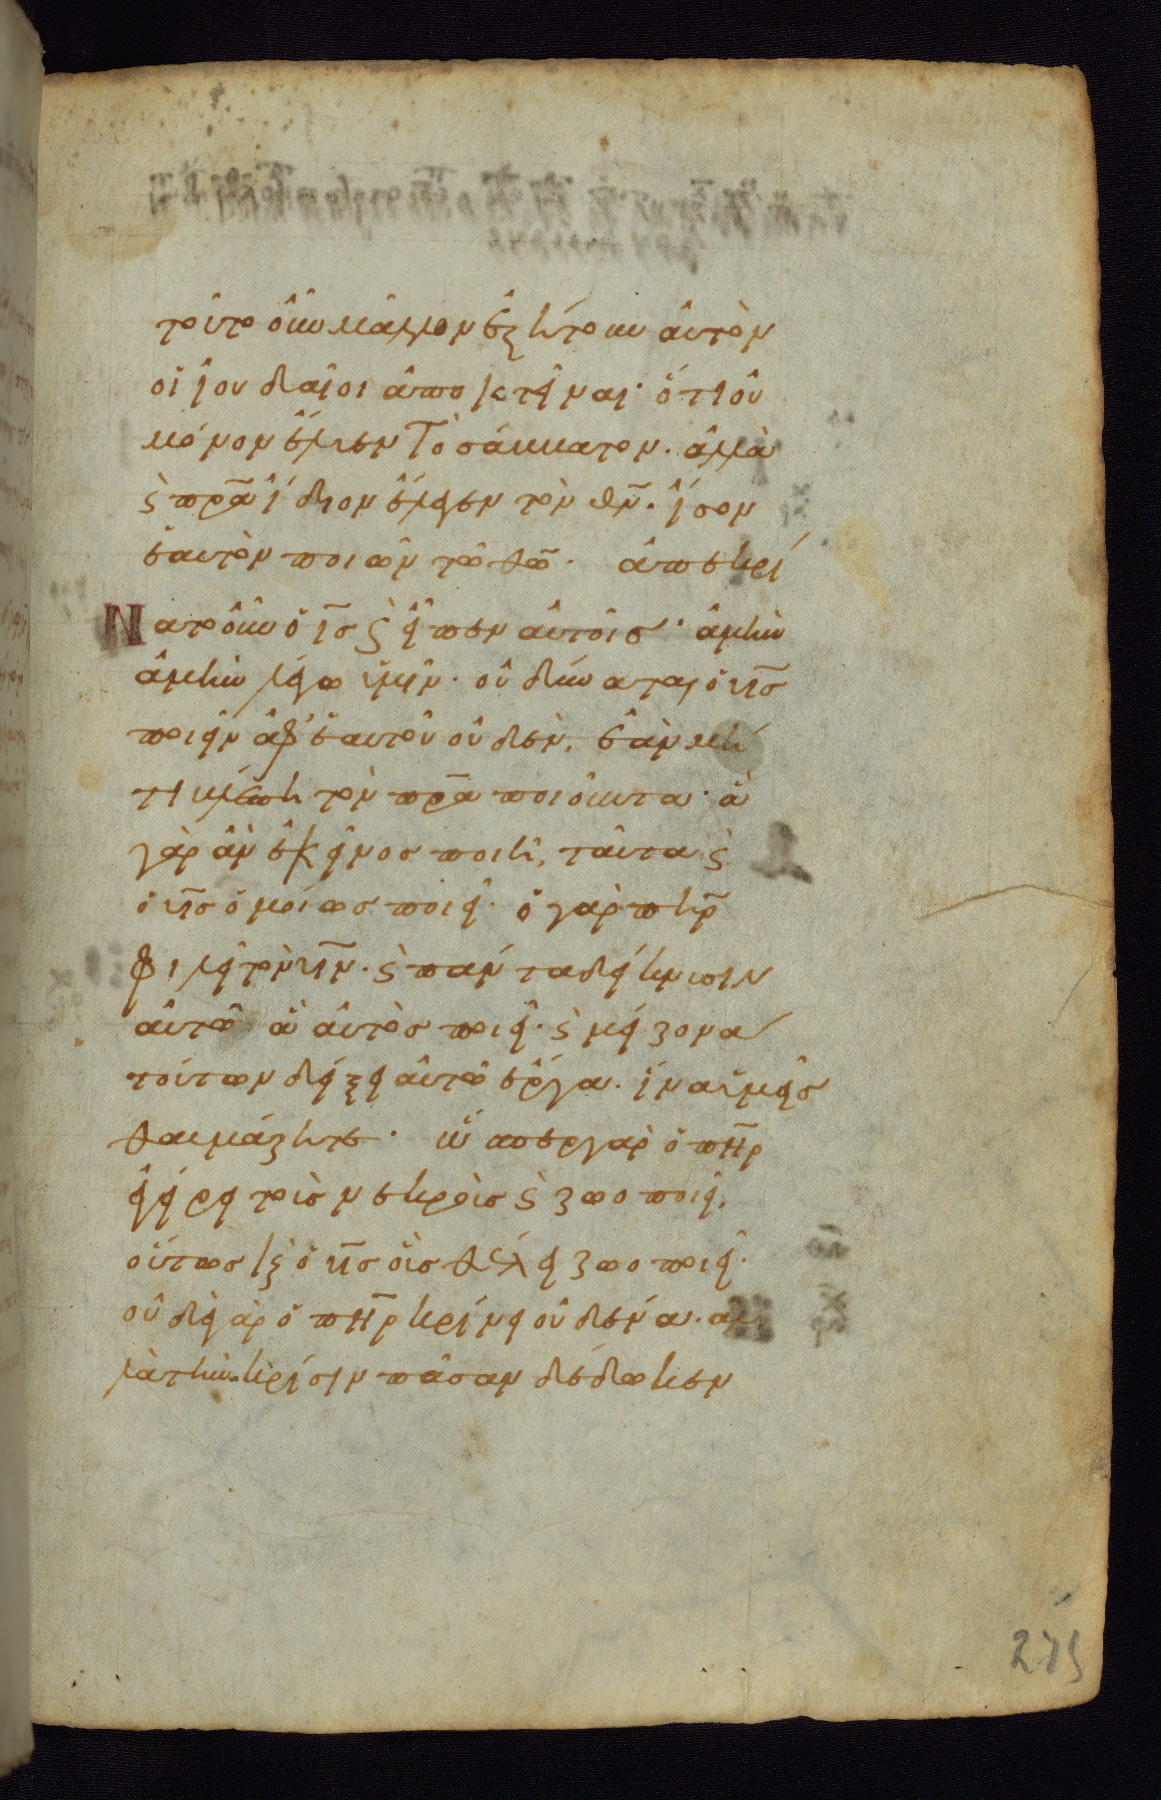 τοῦτο οὖν μᾶλλον ἐζήτουν αὐτὸν
οἱ ἰουδαῖοι ἀποκτεῖναι· ὅτι οὐ
μόνον ἔλυεν τὸ σάββατον. ἀλλὰ
ϛ̀ πρ̅α ἴδιον ἔλεγεν τὸν θ̅ν. ἴσον
ἑαυτὸν ποιῶν τῶ θ̅ω. ἀπεκρί
Νατο οὖν ὁ ι̅ς ϛ̀ εἶπεν αὐτοῖς· ἀμὴν
ἀμὴν λέγω ὑμῖν. οὐ δύναται ὁ υ̅ς
ποιεῖν ἀφ' ἑαυτοῦ οὐδὲν, ἐὰν μή
τι βλέπη τὸν πρ̅α ποιοῦντα· ἃ
γὰρ ἂν ἐκεῖνος ποιῆ, ταῦτα ϛ̀
ὁ υ̅ς ὁμοίως ποιεῖ. ὁ γὰρ π̅ηρ
φιλεῖ τὸν υ̅ν. ϛ̀ πάντα δείκνυσιν
αὐτῶ ἃ αὐτὸς ποιεῖ. ϛ̀ μείζονα
τούτων δείξει αὐτῶ ἔργα. ἵνα ὑμεῖς
θαυμάζητε· ὥσπερ γὰρ ὁ π̅ηρ
ἐγείρει τοὺς νεκροὺς ϛ̀ ζωοποιεῖ,
οὕτως κ̀ ὁ υ̅ς οὓς θέλει ζωοποιεῖ.
οὐδὲ γὰρ ὁ π̅ηρ κρίνει οὐδένα. ἀλ
λὰ τὴν κρίσιν πᾶσαν δέδωκεν
275